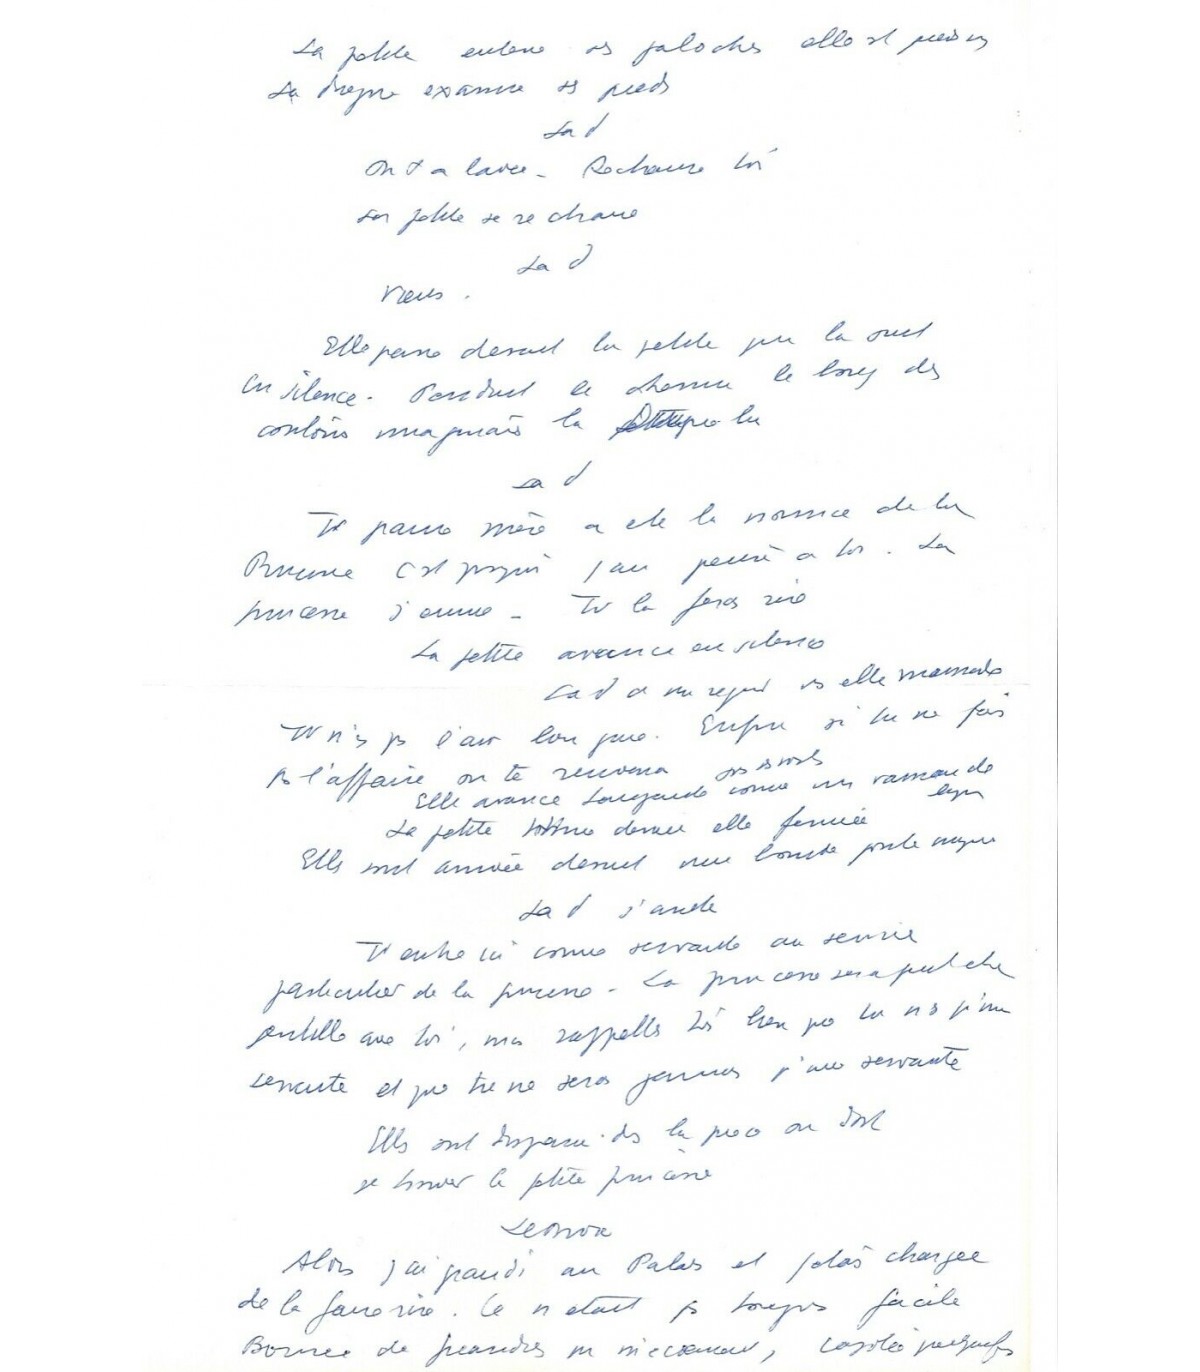 La petite enleve ses galoches elle est pieds nus
La Duegne examine ses pieds
La d
On t a lavee - Rechausse toi
La petite se rechausse
La d
Viens .
Elle passe devant la petite qui la suit
en silence . Pendant le chemin le long des
couloirs imaginaires la
La d
Ta pauvre mère a ete la nourrice de la
Princesse c'est pourquoi j'ai pensé a toi . La
princesse s'ennuie - Tu la feras rire
La petite avance en silence
La d a un regard elle
Tu n'as pas l'air bien gaie. Enfin si tu ne fais
pas l'affaire on te renverra
Elle avance comme un
La petite derrière elle fermée
Elles sont arrivée devant une porte
La d s'arrete
Tu entre ici comme servante au service
particulier de la princesse - La princesse sera peut etre
gentille avec toi , mais rappelle toi bien que tu n'es qu'une
servante et que tu ne seras jamais qu'une servante
Elles ont disparu ds la piece ou doit
se trouver la petite princesse
Leonor
Alors j'ai grandi au Palais et j'etais chargee
de la faire rire . Ce n etait pas toujours facile
Bourree de friandises